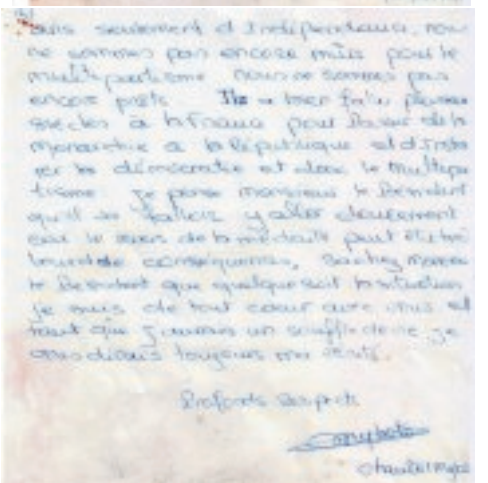 ans seulement d'Indépendance, nous
ne sommes pas encore mûrs pour le
multipartisme nous ne sommes pas
encore prêts. Il a bien fallu plusieurs
siècles à la France pour passer de la
monarchie à la République et d'instau
rer la démocratie et donc le multipar
tisme. Je pense monsieur le Président
qu'il fallait y aller doucement
car le revers de la médaille peut être
lourd de conséquences, Sachez monsieur
le Président que quelque soit la situation
je suis de tout cœur avec vous et
tant que j'aurais un souffle de vie je
vous dirais toujours ma vérité.
Profonds Respects